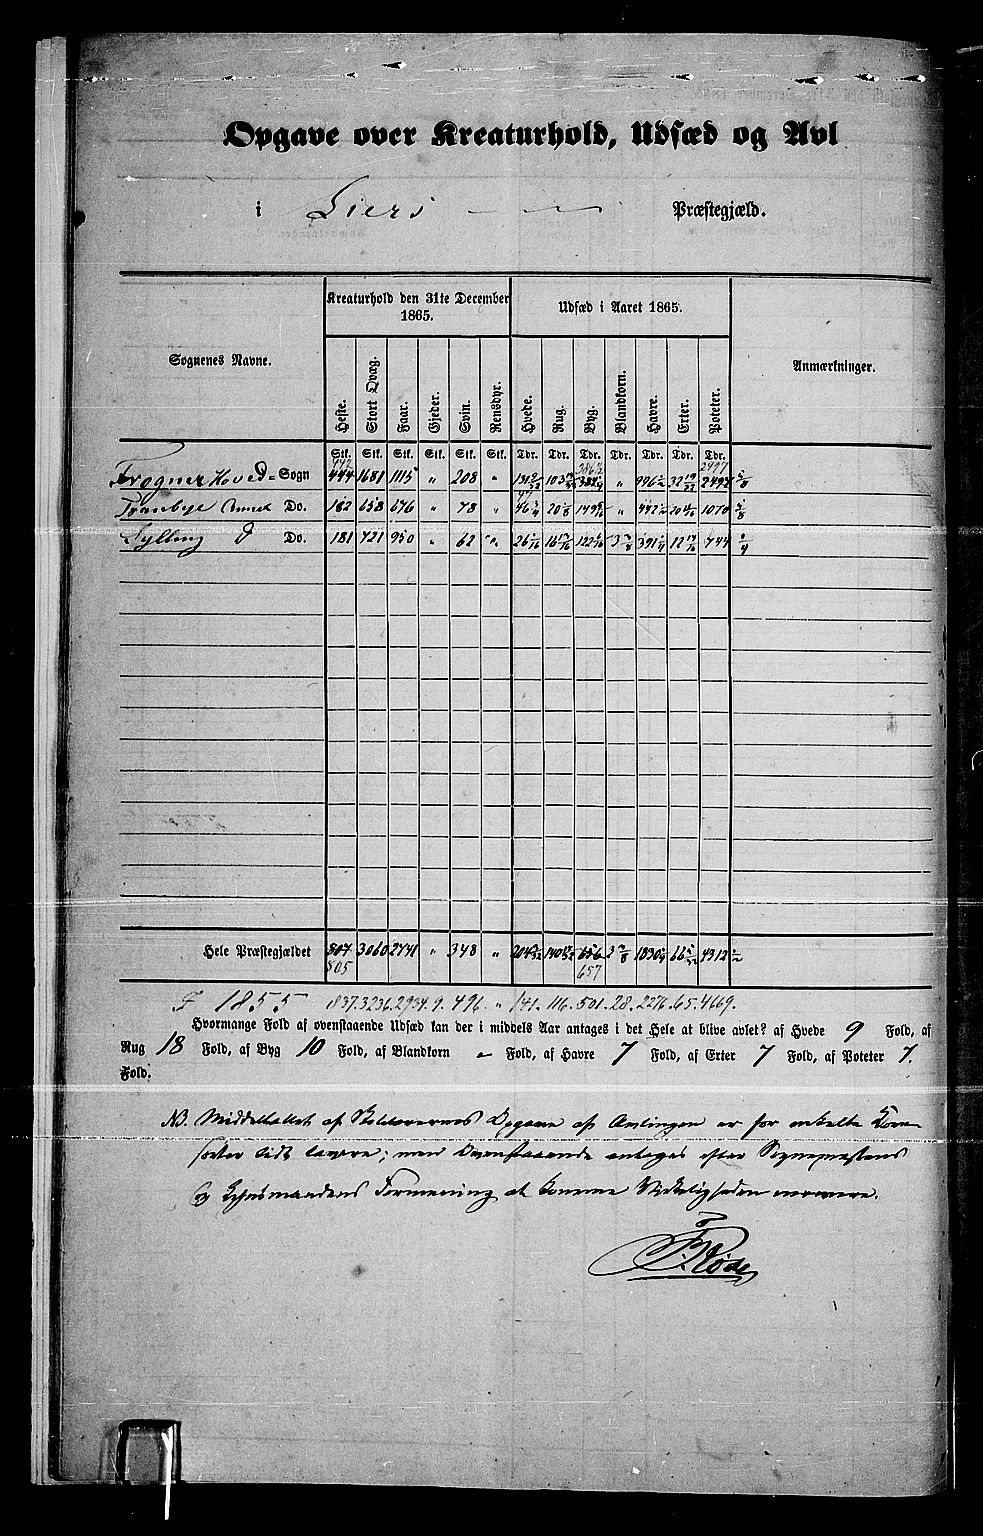 Opgave over Kreaturhold, Udsæd og Avl
i Liers Præstegjæld.
Kreaturhold den 31te December 1865. Udsæd i Aaret 1865.
Sognenes Navne. Heste. Stort Qvæg. Faar. Gjeder. Svin. Rensdyr. Hvede. Rug. Byg. Blandkorn. Havre. Erter. Poteter. Anmærkninger.
Stk. Stk. Stk. Stk. Stk. Stk. Tdr. Tdr. Tdr. Tdr. Tdr. Tdr. Tdr.
442 386½ 2497
Frogner Hoved-Sogn 444 1681 1115 " 208 " 131 103 " 996 32 2497
47
Tranbye Annex Do. 182 658 676 " 78 " 46¾ 20 149 " 442 20 1070
Sylling D Do. 181 721 950 " 62 " 26 16 122 3 391 12 744
Hele Præstegjældet 807 3060 2741 " 348 " 204 140 656 3 1830 66 4312
805 657
F 1855 1837. 3236. 2934. 9. 496. " 141. 116. 501. 28. 2276. 65. 4669.
Hvormange Fold af ovenstaaende Udsæd kan der i middels Aar antages i det Hele at blive avlet? af Hvede 9 Fold, af
Rug 18 Fold, af Byg 10 Fold, af Blandkorn - Fold, af Havre 7 Fold, af Erter 7 Fold, af Poteter 7.
Fold.
NB. Middeltallet af Opgave af Avlingen er for enkelte Korn-
sorter lidt lavere; men Ovenstaaende antages efter Sognepræstens
og Lensmandens Formening at komme Virkeligheden nærmere.